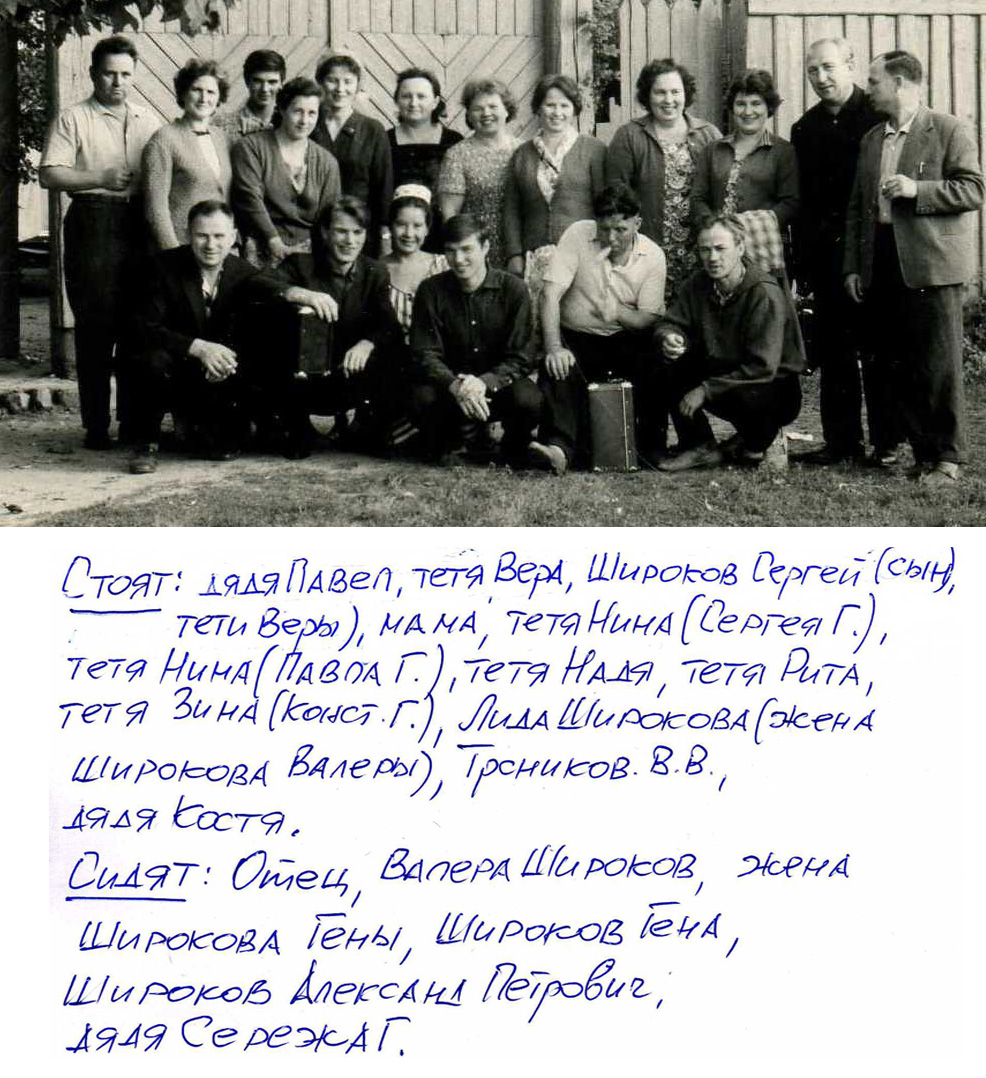 Стоят: дядя Павел, тетя Вера, Широков Сергей (сын),
тети Веры), мама, тетя Нина (Сергея Г.),
тетя Нина (Павла Г.), тетя Надя, тетя Рита,
тетя Зина (Конст. Г.), Лида Широкова (жена
Широкова Валеры), Трсников. В.В.,
дядя Костя.
Сидят: Отец, Валера Широков, жена
Широкова Гены, Широков Гена,
Широков Александ Петрович,
дядя Сережа Г.